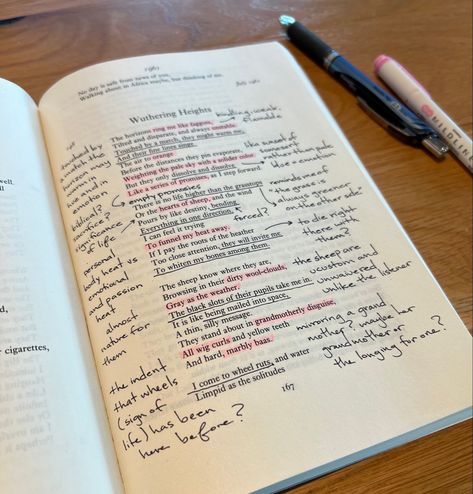 1961
No day is safe from news of you,
Walking about in Africa maybe, but thinking of me.
July 1961
Wuthering Heights
The horizons ring me like faggots,
Tilted and disparate, and always unstable.
Touched by a match, they might warm me,
And their fine lines singe
The air to orange
Before the distances they pin evaporate,
Weighting the pale sky with a solider color.
But they only dissolve and dissolve
Like a series of promises, as I step forward.
There is no life higher than the grasstops
Or the hearts of sheep, and the wind
Pours by like destiny, bending
Everything in one direction.
I can feel it trying
To funnel my heat away.
If I pay the roots of the heather
Too close attention, they will invite me
To whiten my bones among them.
The sheep know where they are,
Browsing in their dirty wool-clouds,
Gray as the weather.
The black slots of their pupils take me in.
It is like being mailed into space,
A thin, silly message.
They stand about in grandmotherly disguise,
All wig curls and yellow teeth
And hard, marbly baas.
I come to wheel ruts, and water
Limpid as the solitudes
167
kindling, weak,
flamable
touched by
a match, the
horizons may
warm in
we and in
emotion
biblical?
sacrifice?
significance
of life
empty promises
personal
body heat vs
emotional
and passion
heat
almost
nature for
them
the indent
that wheels
(sign of
life) has been
here before?
like based of
rather than pale
use emotion
reminds me of
"the grass is
always greener
on the other side"
forced?
to die right
there with
them?
the sheep are
accustom and
unwavered
unlike the listener
mirroring a grand
mother? maybe her
grandmother or
the longing for one?
well.
r cigarettes,
MILDLIN